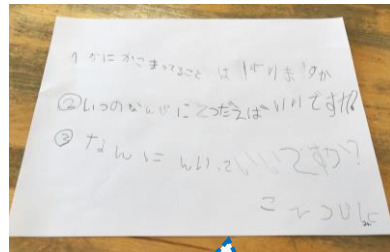 かにかこまってることはありますか
②いつのなんじにてつだえばいいですか?
③なんにんいっていいですか?